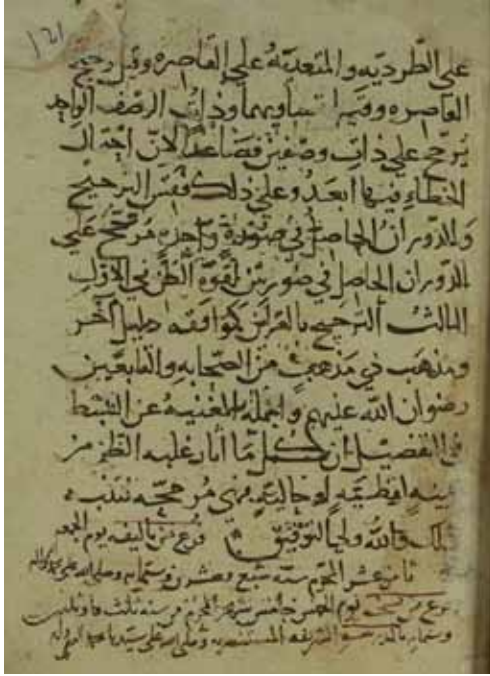 ١٤١
على الطرديه والمتعديّة على القاصره وقيل ترجح
القاصره وقيل بتساويهما وذات الوصف الواحد
ترجح على ذات وصفين فصاعدًا لان احتمال
الخطاء فيها ابعد وعلى ذلك فقس الترجيح
والدوران الحاصل في صورة واحدة مرجح على
الدوران الحاصل في صورتين لقوة الظن في الاول
الثالث الترجيح بالقرائن كموافقة دليل آخر
ومذهب ذي مذهب من الصحابه والتابعين
رضوان الله عليهم والجملة المغنيه عن البسط
في التفصيل ان كل ما اثار غلبه الظن من
قطعية او حاليّه فهي مرجحه
بذلك والله ولي التوفيق فرغ من تاليفه يوم الجمعه
ثامن عشر المحرم سنه سبع وعشرين وستمايه وصلى الله على
فرغ من نسخه يوم الخميس خامس شهر المحرم من سنه ثلث وثلثين
وستمايه الشريفه المستنصريه وصلى الله على سيدنا محمد